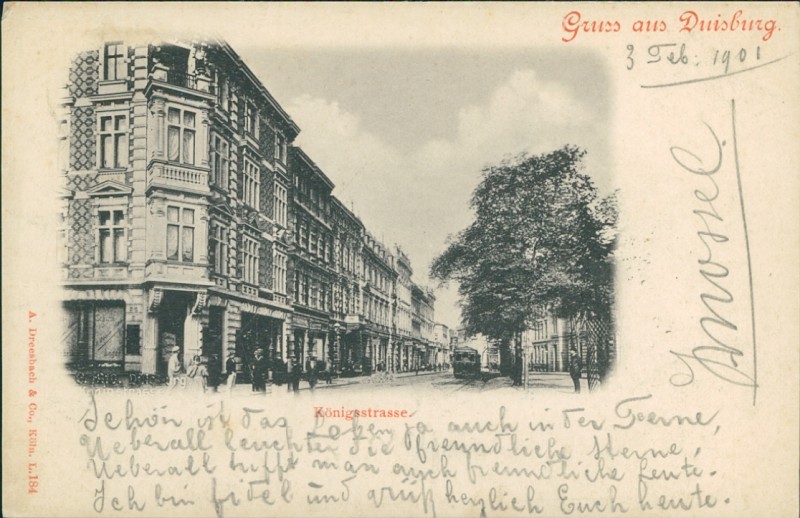 Gruss aus Duisburg.
3 Feb. 1901
Königsstrasse.
A. Dreesbach & Co., Köln. L.184
Schön ist das Leben ja auch in der Ferne,
Ueberall leuchten die freundliche Sterne,
Ueberall trifft man auch freundliche Leute.
Ich bin fidel und grüß herzlich Euch heute.